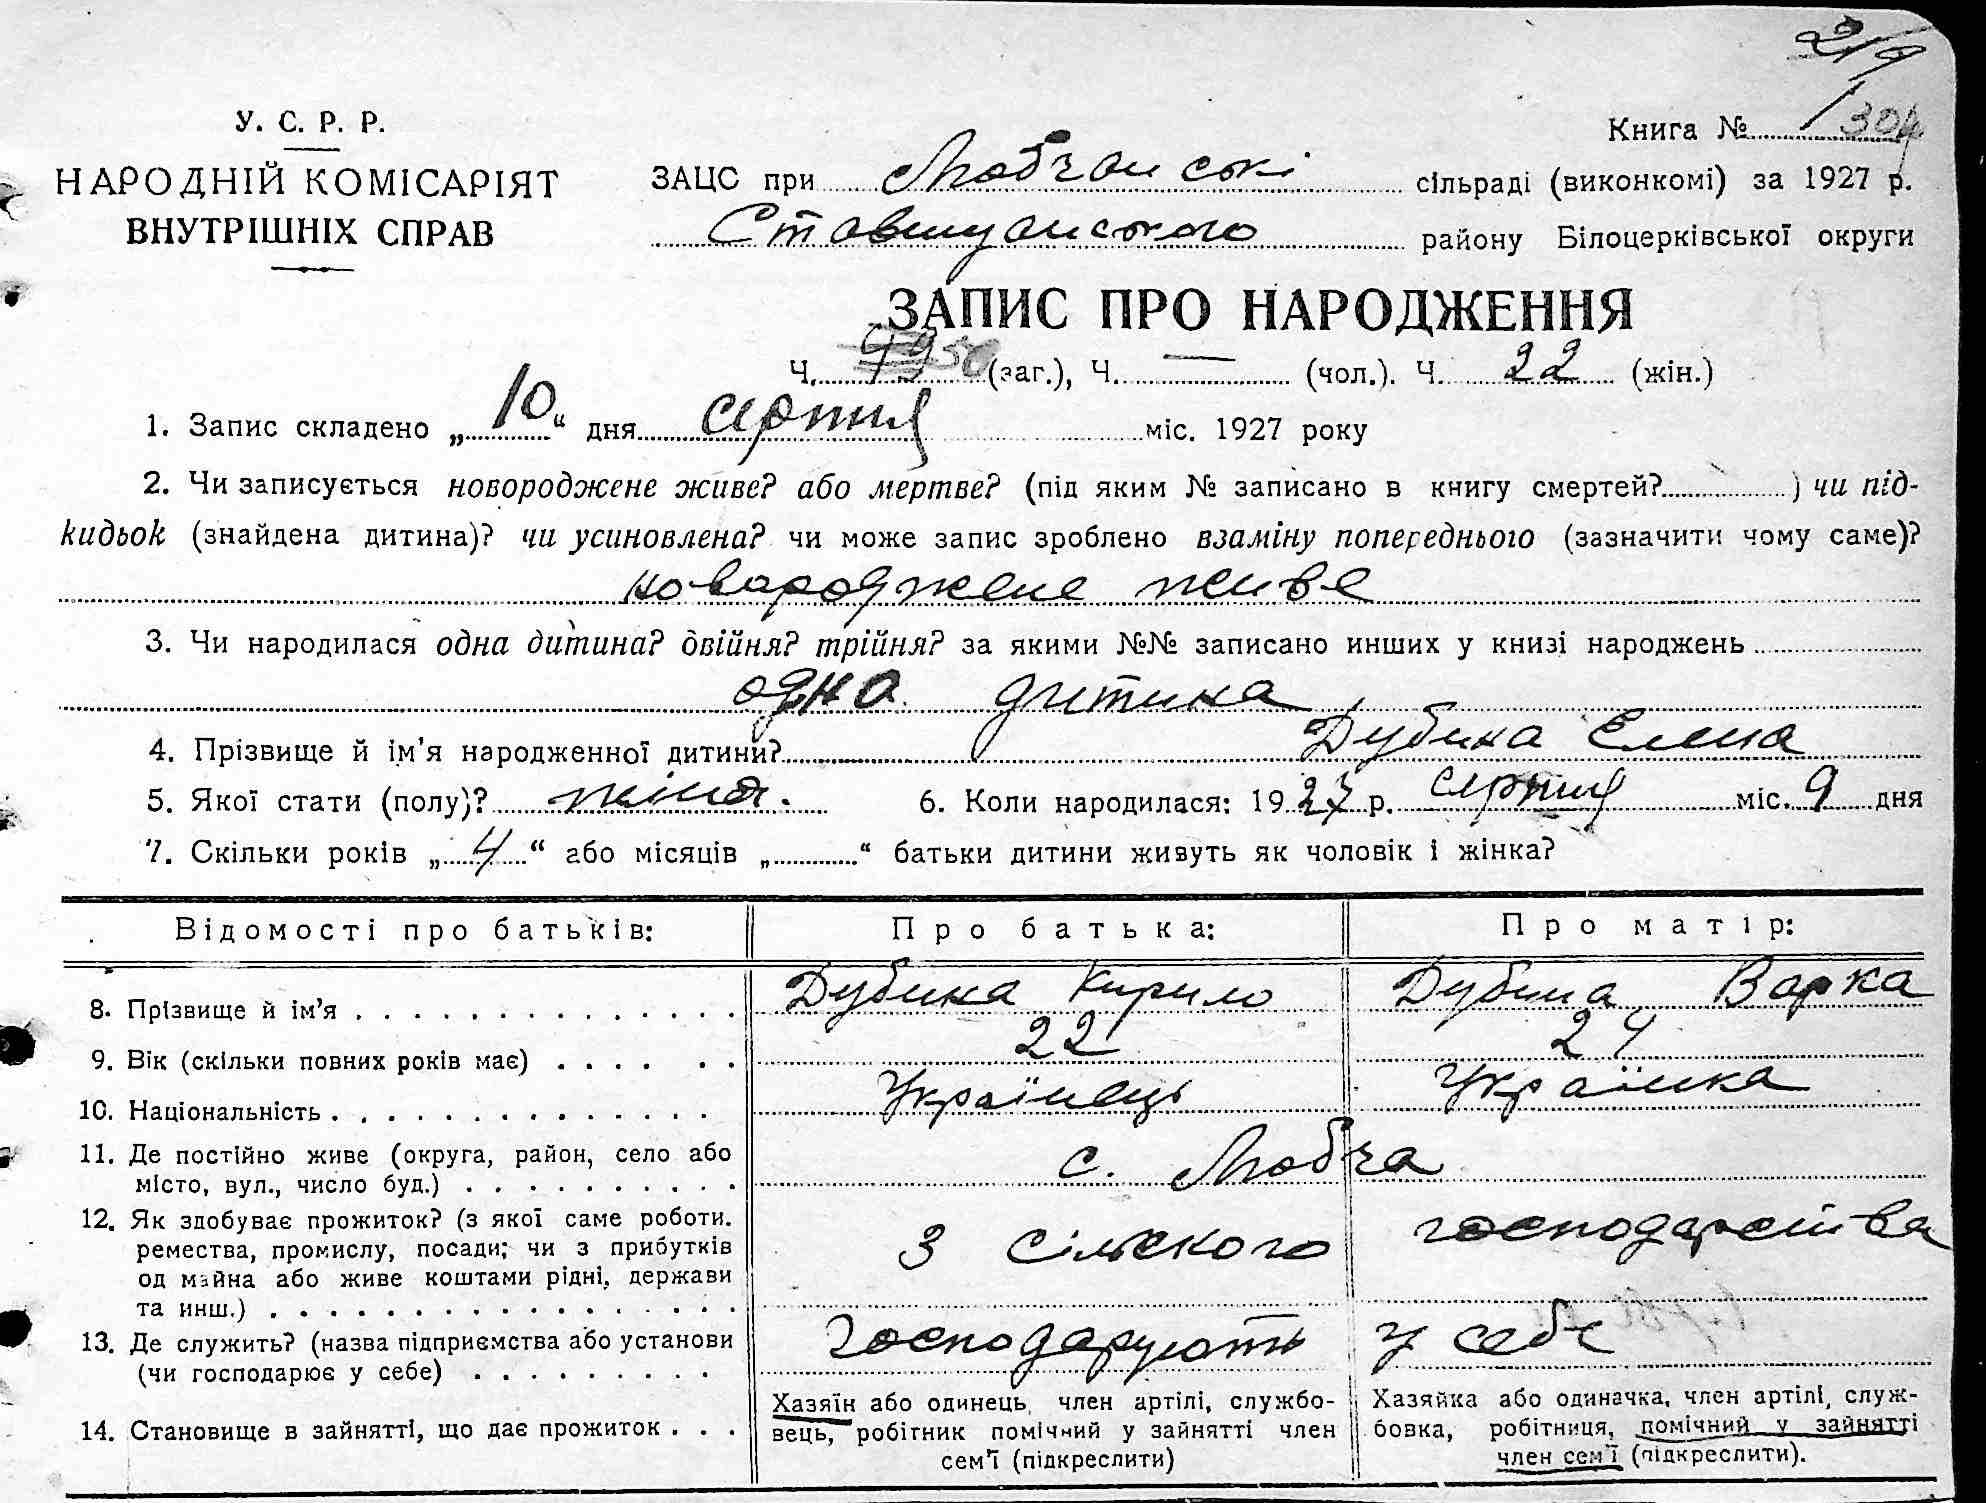 219
У. С. Р. Р.
НАРОДНІЙ КОМІСАРІЯТ
ВНУТРІШНІХ СПРАВ
Книга № 1 304
ЗАЦС при Любчанські сільраді (виконкомі) за 1927 р.
Ставищанського району Білоцерківської округи
ЗАПИС ПРО НАРОДЖЕННЯ
Ч. 50 (заг.), Ч. — (чол.). Ч. 22 (жін.)
1. Запис складено „10“ дня серпня міс. 1927 року
2. Чи записується новороджене живе? або мертве? (під яким № записано в книгу смертей?..........) чи під-
кидьок (знайдена дитина)? чи усиновлена? чи може запис зроблено взаміну попереднього (зазначити чому саме)?
новароджене живе
3. Чи народилася одна дитина? двійня? трійня? за якими №№ записано инших у книзі народжень
одна дитина
4. Прізвище й ім’я народженної дитини? Дубина Елена
5. Якої стати (полу)? жіноч. 6. Коли народилася: 1927 р. серпня міс. 9 дня
7. Скільки років „4“ або місяців „..........“ батьки дитини живуть як чоловік і жінка?
Відомості про батьків: Про батька: Про матір:
8. Прізвище й ім’я Дубина Кирило Дубина Варка
9. Вік (скільки повних років має) 22 24
10. Національність Українець Українка
11. Де постійно живе (округа, район, село або
місто, вул., число буд.) с. Любча
12. Як здобуває прожиток? (з якої саме роботи.
ремества, промислу, посади; чи з прибутків
од майна або живе коштами рідні, держави
та инш.) З сільского господарства
13. Де служить? (назва підприємства або установи
(чи господарює у себе) Господарують у себе
14. Становище в зайнятті, що дає прожиток
Хазяїн або одинець, член артілі, службо-
вець, робітник помічний у зайнятті член
сем’ї (підкреслити)
Хазяйка або одиначка, член артілі, служ-
бовка, робітниця, помічний у зайнятті
член сем’ї (підкреслити).